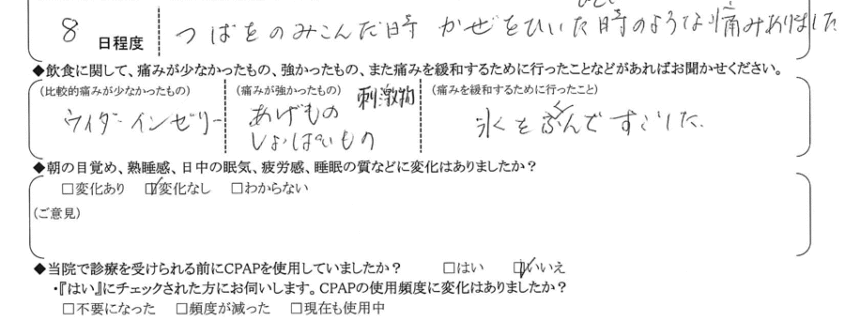 8 日程度 つばをのみこんだ時 かぜをひいた時のような痛みありました
◆飲食に関して、痛みが少なかったもの、強かったもの、また痛みを緩和するために行ったことなどがあればお聞かせください。
(比較的痛みが少なかったもの) (痛みが強かったもの) 刺激物 (痛みを緩和するために行ったこと)
ウイダーインゼリー あげもの 氷をふくんですごした。
しょっぱいもの
◆朝の目覚め、熟睡感、日中の眠気、疲労感、睡眠の質などに変化はありましたか?
□変化あり ☑変化なし □わからない
(ご意見)
◆当院で診療を受けられる前にCPAPを使用していましたか? □はい ☑いいえ
・『はい』にチェックされた方にお伺いします。CPAPの使用頻度に変化はありましたか?
□不要になった □頻度が減った □現在も使用中